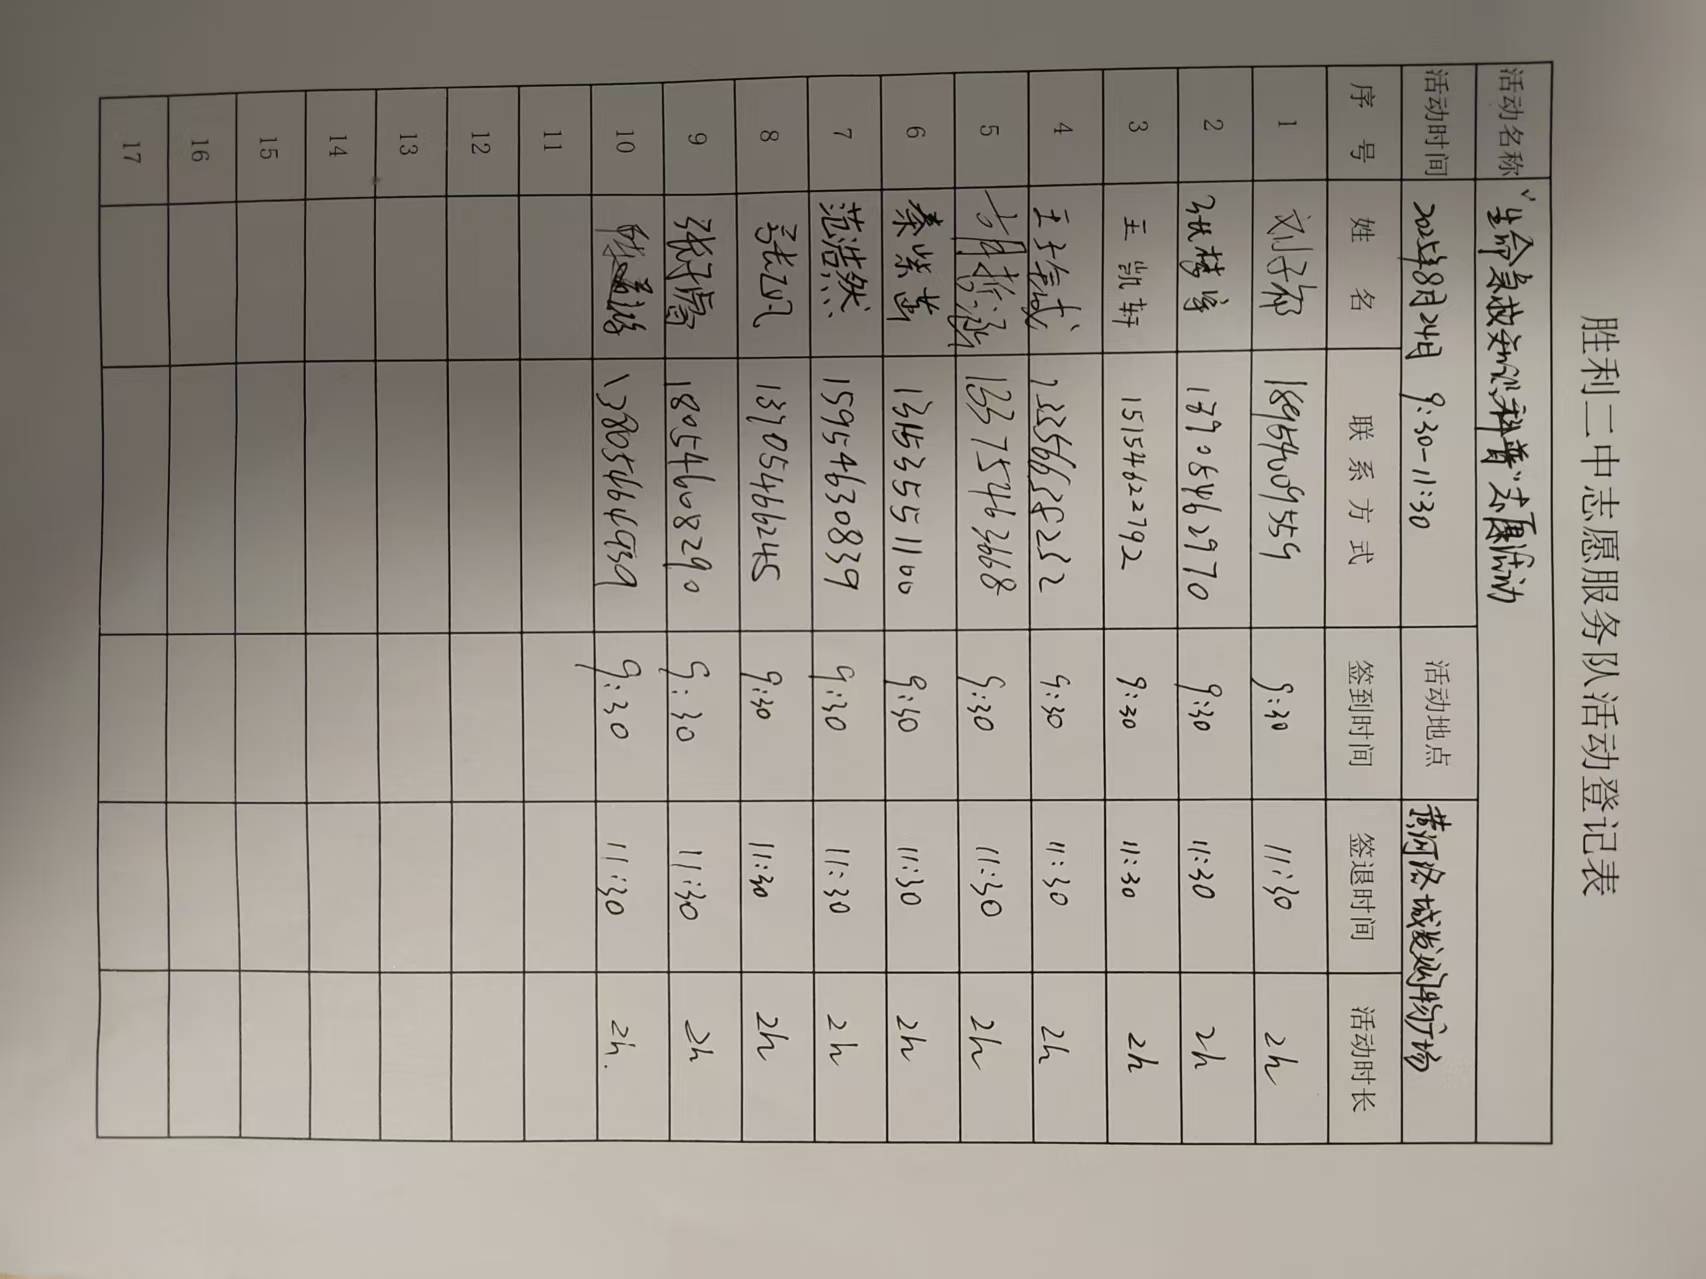 胜利二中志愿服务队活动登记表
活动名称 "生命急救知识科普"志愿活动
活动时间 2025年8月24日 9:30-11:30 活动地点 黄河路城发购物广场
序号 姓名 联系方式 签到时间 签退时间 活动时长
1 刘子祁 18954609559 9:30 11:30 2h
2 张梦宇 13905462970 9:30 11:30 2h
3 王凯轩 15154622792 9:30 11:30 2h
4 9:30 11:30 2h
5 13375463668 9:30 11:30 2h
6 秦紫萱 13153551100 9:30 11:30 2h
7 范浩然 15954630839 9:30 11:30 2h
8 13705466245 9:30 11:30 2h
9 18054608290 9:30 11:30 2h
10 13805464939 9:30 11:30 2h.
11
12
13
14
15
16
17